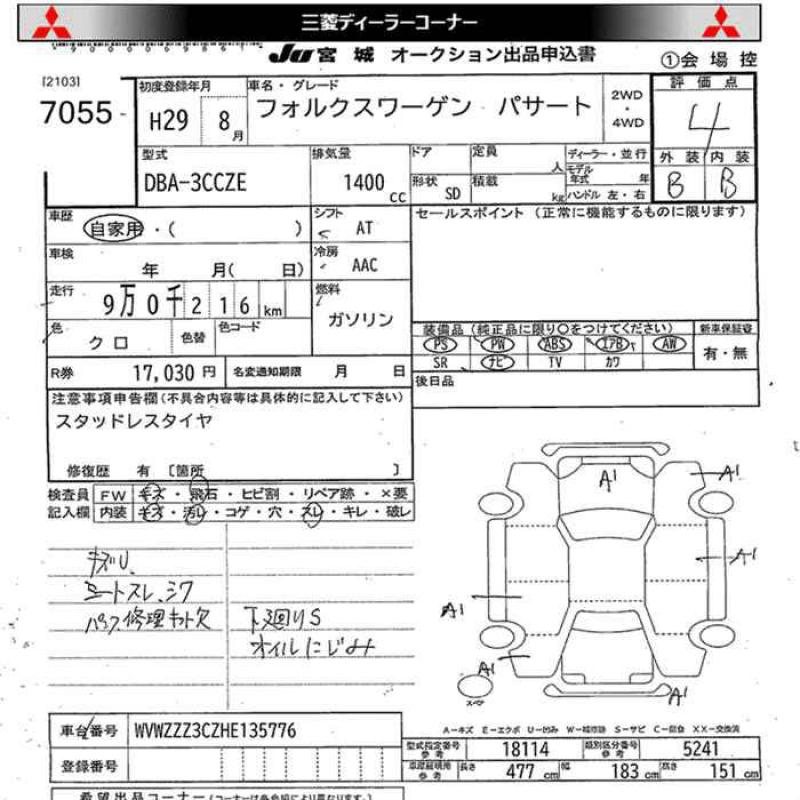 三菱ディーラーコーナー
JU 宮城 オークション出品申込書
①会場控
[2103]
7055
初度登録年月
H29 8月
車名・グレード
フォルクスワーゲン パサート
2WD
・
4WD
評価点
4
外装 内装
B B
型式
DBA-3CCZE
排気量
1400 cc
ドア
定員
人
形状
SD
積載
kg
ディーラー・並行
モデル年式 年
ハンドル 左・右
車歴
自家用・( )
シフト
AT
セールスポイント (正常に機能するものに限ります)
車検
年 月( 日)
冷房
AAC
走行
9万0千216km
燃料
ガソリン
色
クロ
色替
色コード
装備品 (純正品に限り○をつけてください)
PS PW ABS エアB AW
SR ナビ TV カワ
新車保証書
有・無
R券 17,030 円
名変通知期限 月 日
後日品
注意事項申告欄(不具合内容等は具体的に記入して下さい)
スタッドレスタイヤ
修復歴 有 [箇所 ]
検査員 FW キズ・飛石・ヒビ割・リペア跡・×要
記入欄 内装 キズ・汚レ・コゲ・穴・スレ・キレ・破レ
キズU
シートスレ、シワ
パンク修理キット欠
下廻りS
オイルにじみ
A1
A1
A1
A1
A1
A1
スペア
A-キズ E-エクボ U-凹み W-補修跡 S-サビ C-腐食 XX-交換済
車台番号 WVWZZZ3CZHE135776
登録番号
型式指定番号 参考 18114
類別区分番号 参考 5241
参考 長さ 477 cm 幅 183 cm 高さ 151 cm
希望出品コーナー